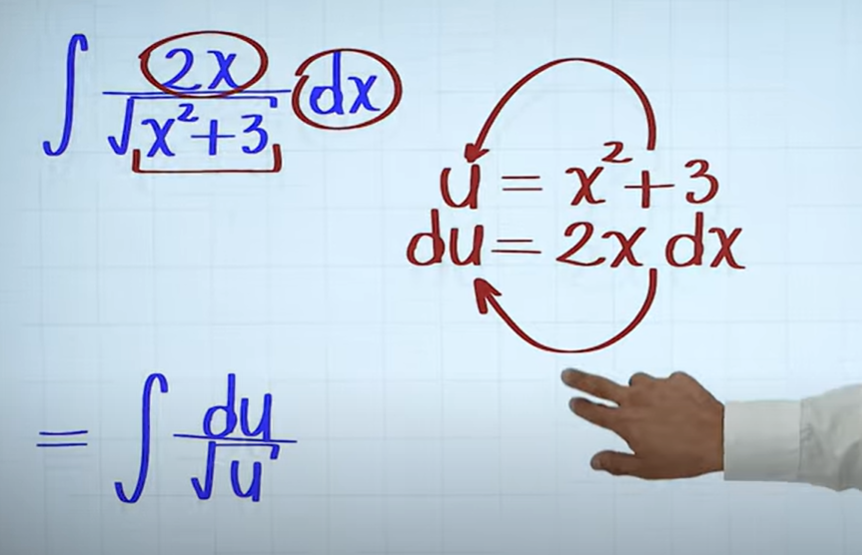 ∫ 2x/√(x²+3) dx
u = x²+3
du = 2x dx
= ∫ du/√u